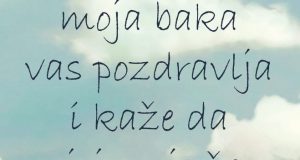 moja baka
vas pozdravlja
i kaže da